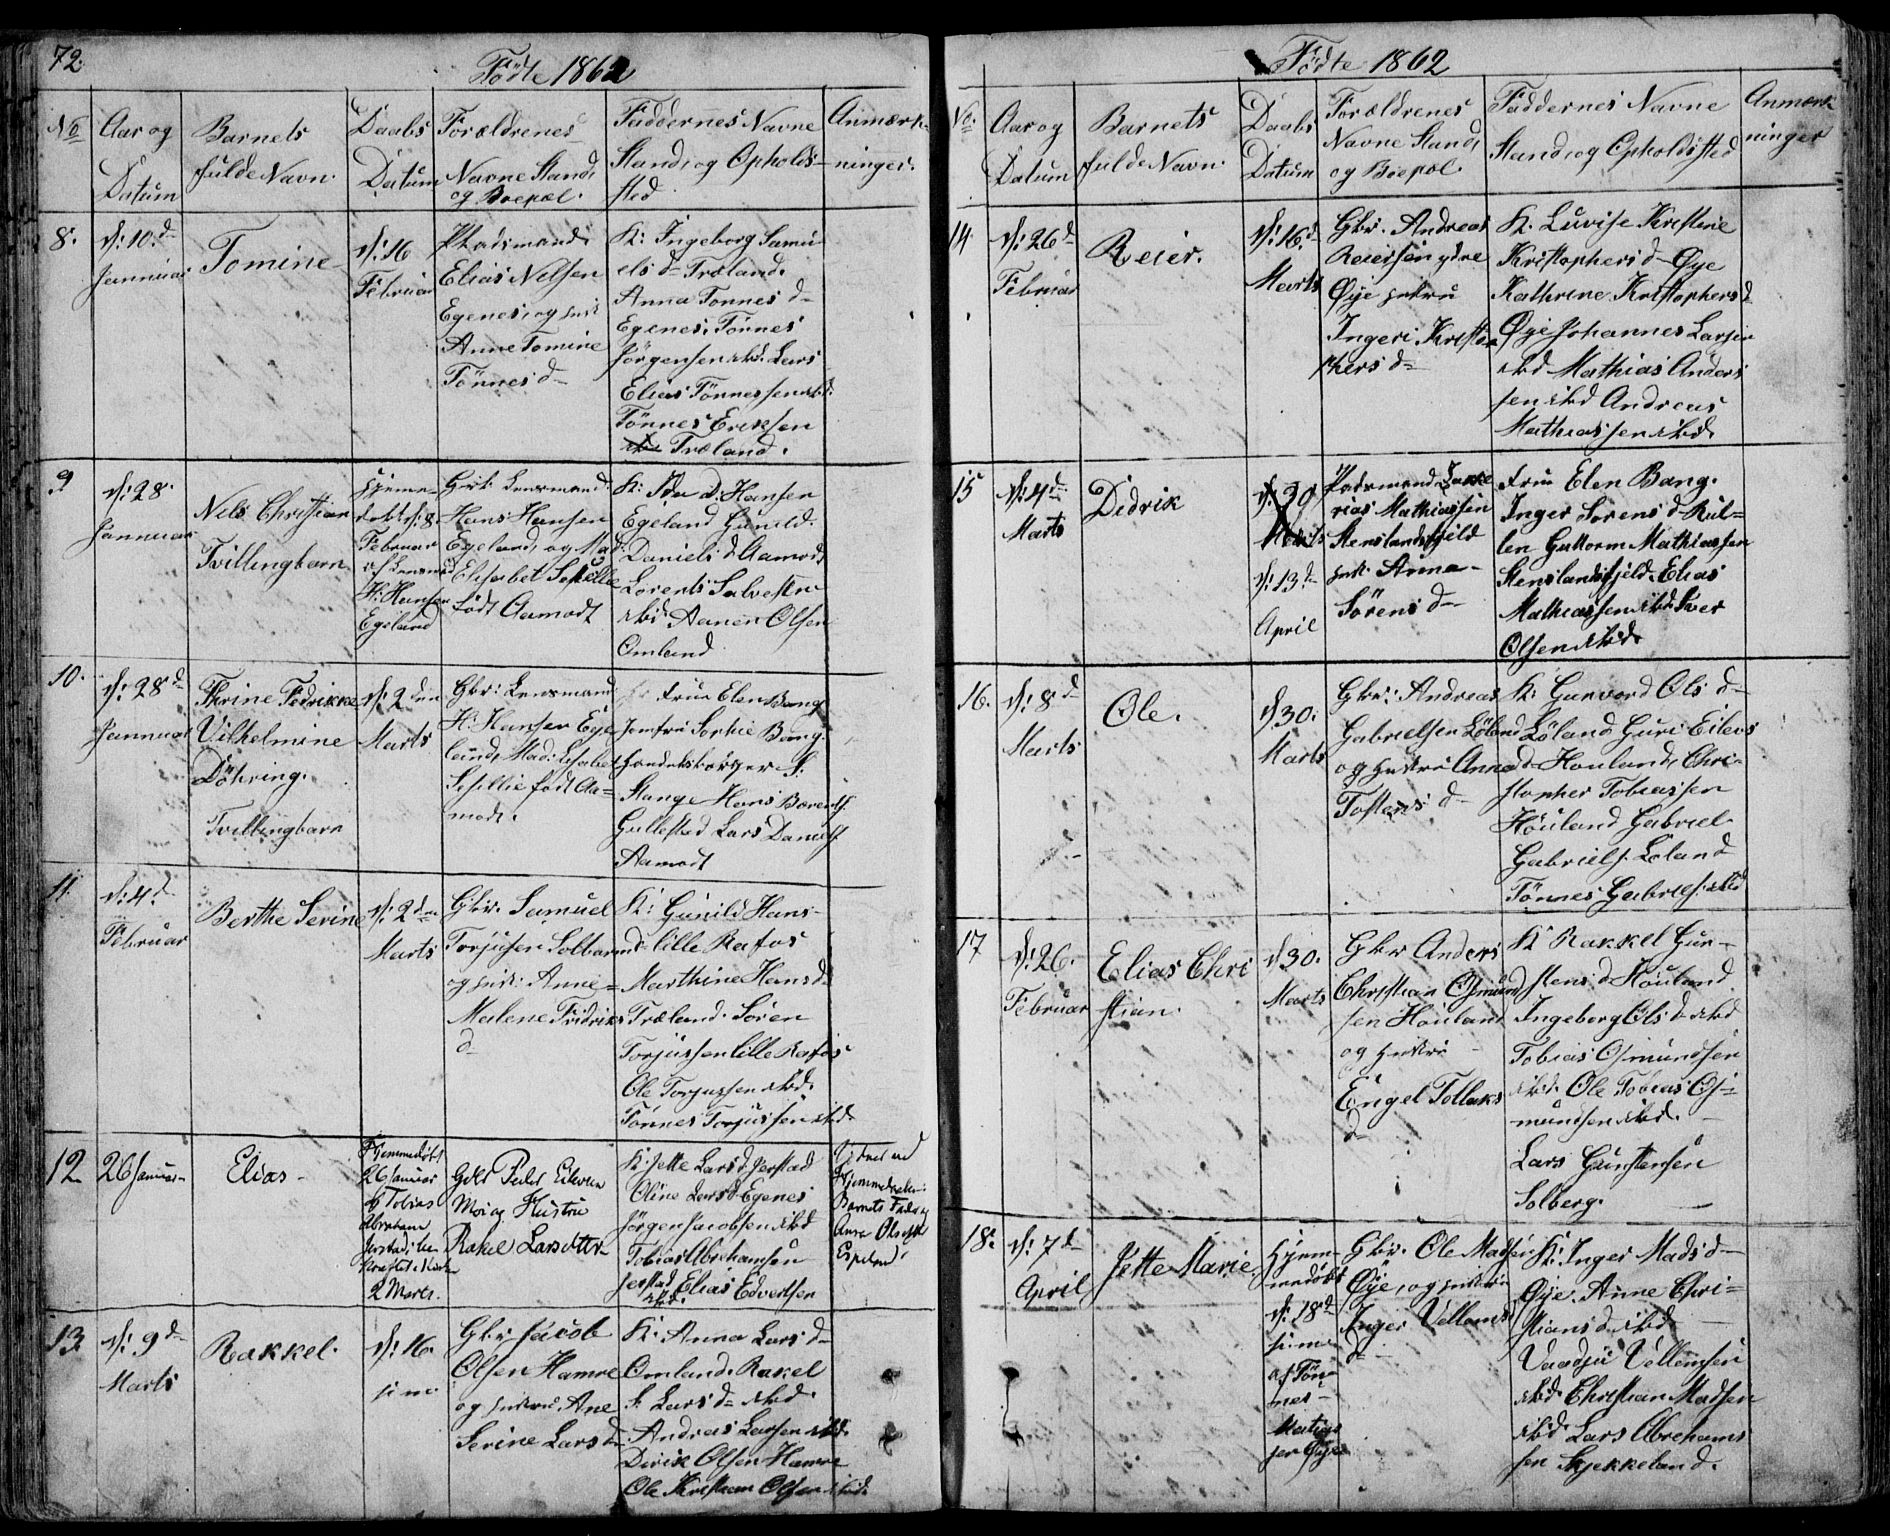 72.
Födte 1862
No
Aar og
Datum
Barnets
fulde Navn.
Daabs
Datum
Forældrenes
Navne Stand,
og Boepæl.
Faddernes Navne
Stand, og Opholds-
sted
Anmærk-
ninger.
8.
d: 10.d
Januar
Tomine
d: 16
Februar
Pladsmand
Elias Nelsen
Egenes, og
Anne Tomine
Tönnes d
K: Ingeborg Samu
els d Træland.
Anna Tonnes d
Egenes. Tönnes
Jörgensen sbd. Lars
Elias Tönnessen sbd.
Tönnes Eriksen
Træland.
9
d: 28
Januar
Nels Christian
Tvillingbarn
Hjemme-
döbt d: 8
Februar
af Lensmand
H: Hansen
Egeland
Gbr. Lensmand
Hans Hansen
Egeland, og Mad:
Elisabet
født Aamodt
K: Ida d. Hansen
Egeland Gunild
Daniels d Aamodt
Lorents Salvesen
sbd Aanen Olsen
Omland
10.
d: 28 d
Januar
Thrine Fedrikke
Vilhelmine
Döhring.
Tvillingbarn
d: 2 den
Marts
Gbr: Lensmand
H: Hansen Ege
land, Mad: Lisabet
født Aa=
modt.
Frue Elen Bang
Jomfru Sophie Bang.
Handelsborger S.
Stange Hans Barents.
Gullestad Lars Daniels.
Aamodt
11.
d: 4 d
Februar
Berthe Serine
d: 2 den
Marts
Gbr. Samuel
Torjusen Solbær
og Anne
Malene Fridriks
d
K: Gunild Hans-
d lille Rafos
Marthine Hans d
Træland. Sören
Torjussen lille Rafos
Ole Torjussen sbd.
Tönnes Torjussen sbd.
12
26 Januar
Elias
Hjemmedöbt
26 Januar
af Tobias
Abraham
Jerstad
2 Marts.
Gbr Peder
Moi og Hustru
Rakel Larsdatter
K: Jette Lars d. Jerstad
Oline Lars d Egenes
Jörgen Jacobsen sbd
Tobias Abrahamsen
Jerstad Elias Edvertsen
sbd.
Vidner ved
Hjemmedaaben:
Barnets Fader og
Anna Olsdtr
Espeland.
13
d: 9 d
Marts
Rakkel.
d: 16.
Gbr Jacob
Olsen Hamre
og Hustru, Ane
Serine Lars d
K: Anna Lars d
Omland. Rakel
Lars d sbd.
Andreas Larsen sbd.
Dirik Olsen Hamre
Ole Kristian Olsen sbd.
Födte 1862
No.
Aar og
Datum
Barnets
fulde Navn.
Daabs
Datum
Forældrenes
Navne Stand,
og Boepæl.
Faddernes Navne
Stand, og Opholdssted
Anmærk
ninger
14
d: 26 d
Februar
Reier.
d: 16. d
Marts
Gbr. Andreas
Reiersen ydre
Øje Hustru
Ingeri Kristo
phers d
K. Luvise Kristine
Kristophers d Øye
Kathrine Kristophers d
Øye Johannes Larsen
sbd Mathias Anders
sen sbd Andreas
Mathiassen sbd.
15
d: 4 d
Marts
Didrik
d: 30
Marts
d: 13 d
April
Pladsmand Zakke
rias Mathiassen
Stenslandsfjeld
Anna
Sörens d
Frue Elen Bang.
Inger Sorens d Rül=
len Guttorm Mathiassen
Stenslandsfjeld. Elias
Mathiassen sbd Iver
Olsen sbd.
16.
d: 8 d
Marts
Ole.
d 30.
Marts
Gbr: Andreas
Gabrielsen Löland
og Hustru Anna
Tostens d
K: Gunvord Ols d
Löland Guri Eilevs
d Houland, Chri-
stopher Tobiassen
Houland Gabriel
Gabriels. Loland
Tönnes Gabriels. sbd
17
d: 26.
Februar
Elias Chri
stian.
d 30.
Marts
Gbr Anders
Christian Osmund
sen Houland
og Hustru
Engel Tollaks
d
K: Rakkel Gun-
stens d Houland.
Ingeborg Ols d sbd
Tobias Osmundsen
sbd. Ole Tobias Os=
mundsen sbd.
Lars Gunstensen
Solberg.
18.
d: 7 d
April
Jette Marie
Hjem-
medöbt
d: 18 d
af Tön
nes
Matias
sen Øye
Gbr. Ole Madsen
Øye, og Hustru
Inger Vellems
d
K: Inger Mads d
Øye. Anne Chri=
stians d sbd
Vellemsen
sbd Christian Madsen
sbd Lars Abrehams
sen Skjekkeland.